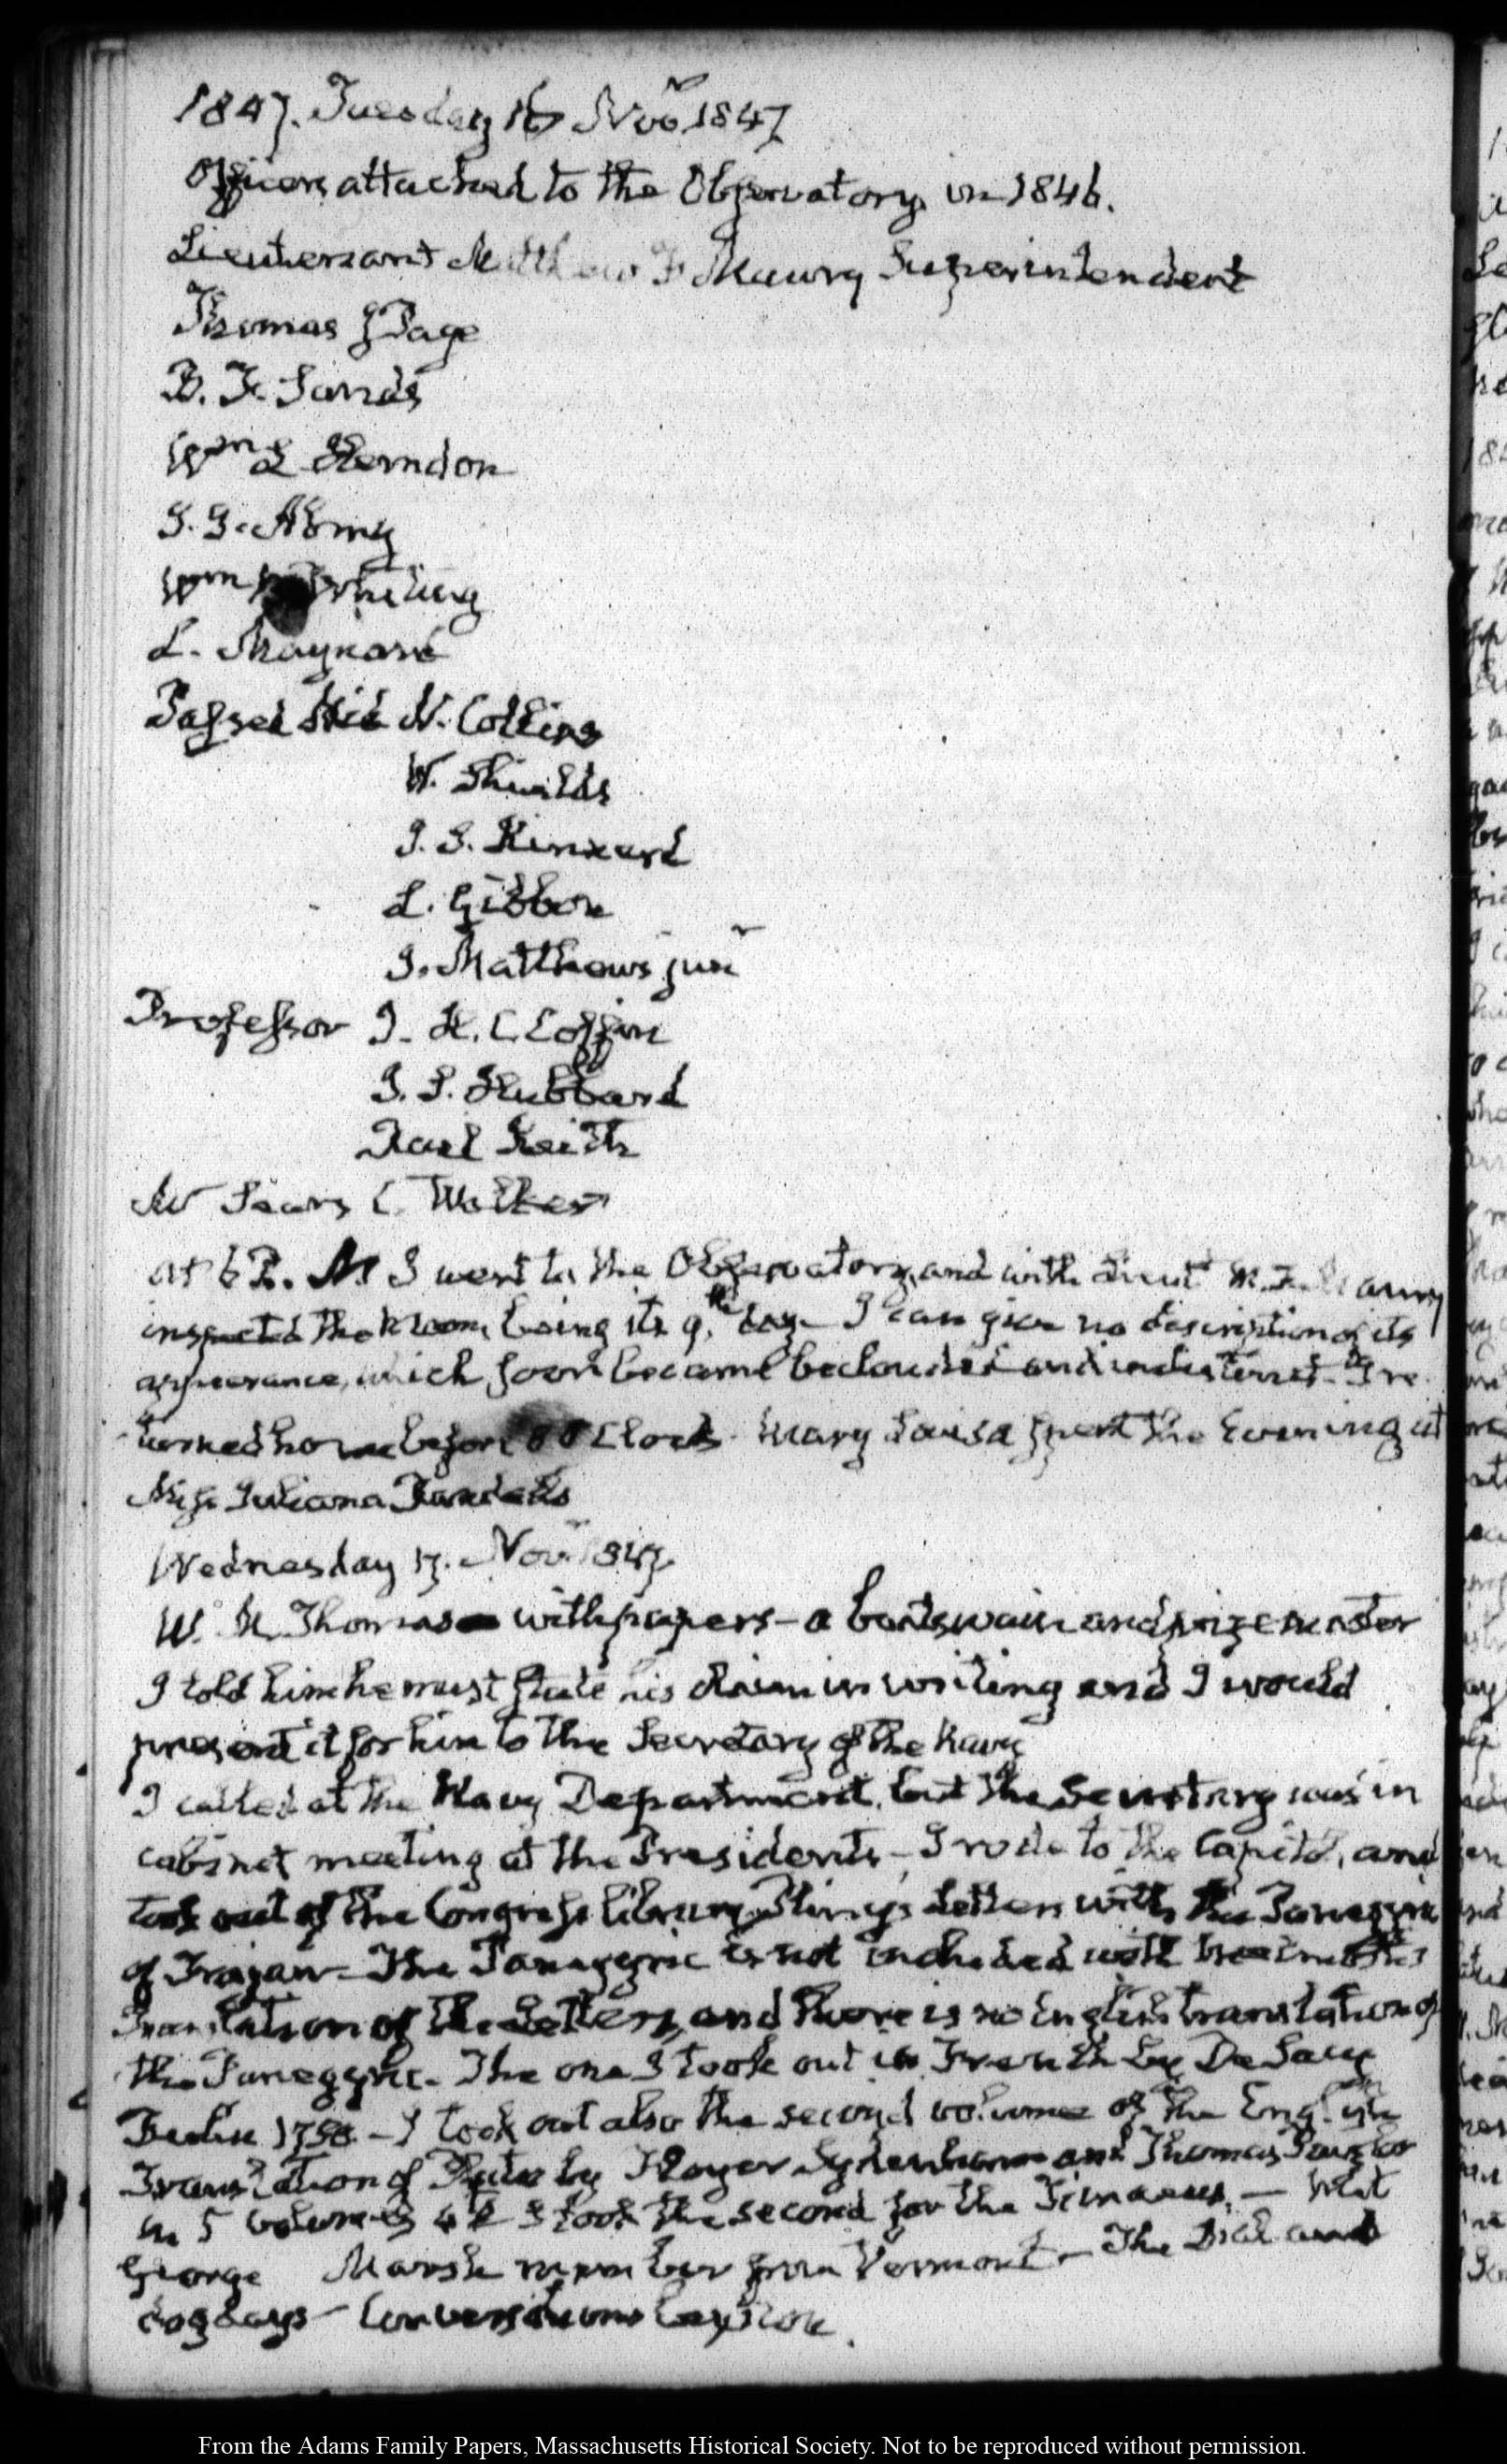 1847. Tuesday 16 Novr 1847
Officers attached to the Observatory in 1846.
Lieutenant Matthew F Maury Superintendent
Thomas J Page
B. F. Sands
Wm L Herndon
J. J. Almy
Wm Whiting
L. Maynard
Passed Mid N. Collins
W. Shields
J. S. Kennard
L. Gibbon
J. Matthews junr
Professor J. H. C Coffin
J. S. Hubbard
Keith
Mr Sears C. Walker
at 6 P. M I went to the Observatory, and with Lieut M. F. Maury
inspected the Moon, being its 9.th day— I can give no description of its
appearance, which soon became beclouded and indistinct— I re-
turned home before 8 O Clock. Mary Louisa spent the Evening at
Miss Juliana
Wednesday 17. Novr 1847.
W. M. Thomas with papers— a boatswain and prize master
I told him he must state his claim in writing and I would
present it for him to the Secretary of the Navy
I called at the Navy Department, but the Secretary was in
cabinet meeting at the Presidents— I rode to the Capitol, and
took out of the Congress library Pliny's Letters with the Panegyric
of Trajan— The Panegyric is not included with
Translation of the Letters, and there is no English translation of
the Panegyric. The one I took out is French by De Sacy
1750.— I took out also the second volume of the English
Translation of Plato by Floyer Sydenham and Thomas Taylor
in 5 volumes 4to I took the second for the Timaeus.— Met
George Marsh member from Vermont— The Dial and
dog days— Conversation
From the Adams Family Papers, Massachusetts Historical Society. Not to be reproduced without permission.